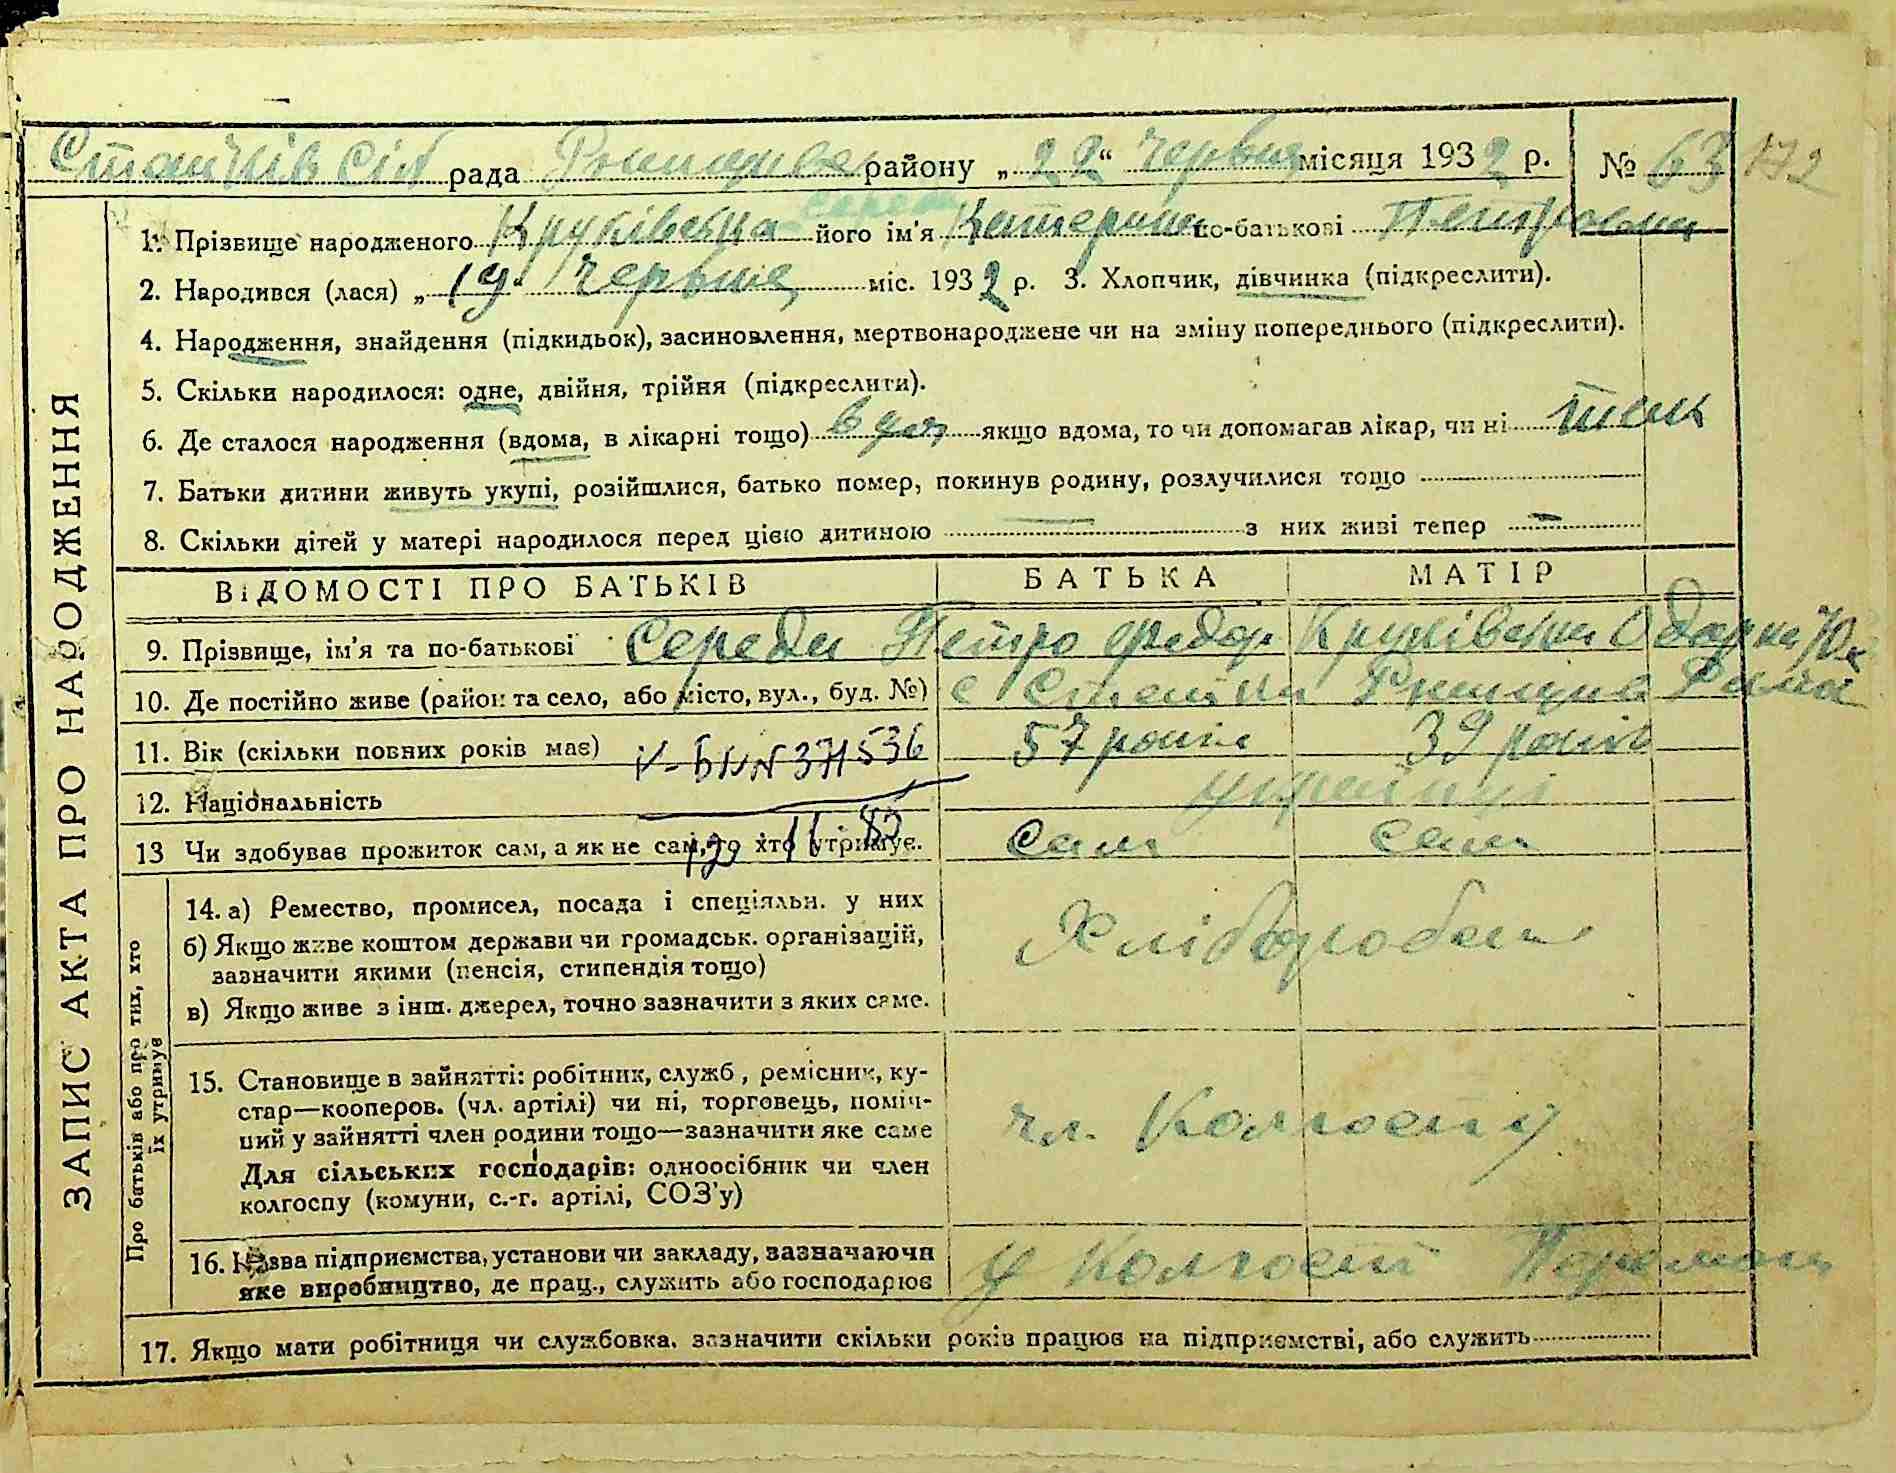 сіл рада району „22“ Червня місяця 1932 р. № 63 172
Середа
1. Прізвище народженого Круківська його ім'я Катерина по-батькові Петровна
2. Народився (лася) „19“ Червня міс. 1932 р. 3. Хлопчик, дівчинка (підкреслити).
4. Народження, знайдення (підкидьок), засиновлення, мертвонароджене чи на зміну попереднього (підкреслити).
5. Скільки народилося: одне, двійня, трійня (підкреслити).
6. Де сталося народження (вдома, в лікарні тощо) якщо вдома, то чи допомагав лікар, чи ні
7. Батьки дитини живуть укупі, розійшлися, батько помер, покинув родину, розлучилися тощо
8. Скільки дітей у матері народилося перед цією дитиною — з них живі тепер —
ВІДОМОСТІ ПРО БАТЬКІВ БАТЬКА МАТІР
9. Прізвище, ім'я та по-батькові Середа Петро Федор Круківська Одарка Юх
10. Де постійно живе (район та село, або місто, вул., буд. №) с
11. Вік (скільки повних років має) V-БК N 371536 57 років 39 років
12. Національність україці
13 Чи здобуває прожиток сам, а як не сам, то хто утримує. сам сам
14. а) Ремество, промисел, посада і спеціяльн. у них
б) Якщо живе коштом держави чи громадськ. організацій,
зазначити якими (пенсія, стипендія тощо)
в) Якщо живе з інш. джерел, точно зазначити з яких саме.
Хлібороби
15. Становище в зайнятті: робітник, служб, ремісник, ку-
стар—кооперов. (чл. артілі) чи ні, торговець, поміч-
ний у зайнятті член родини тощо—зазначити яке саме
Для сільських господарів: одноосібник чи член
колгоспу (комуни, с.-г. артілі, СОЗ'у)
чл. Колгоспу
16. Назва підприємства, установи чи закладу, зазначаючи
яке виробництво, де прац., служить або господарює
У Колгоспі Перемога
17. Якщо мати робітниця чи службовка, зазначити скільки років працює на підприємстві, або служить
ЗАПИС АКТА ПРО НАРОДЖЕННЯ
Про батьків або про тих, хто
їх утримує